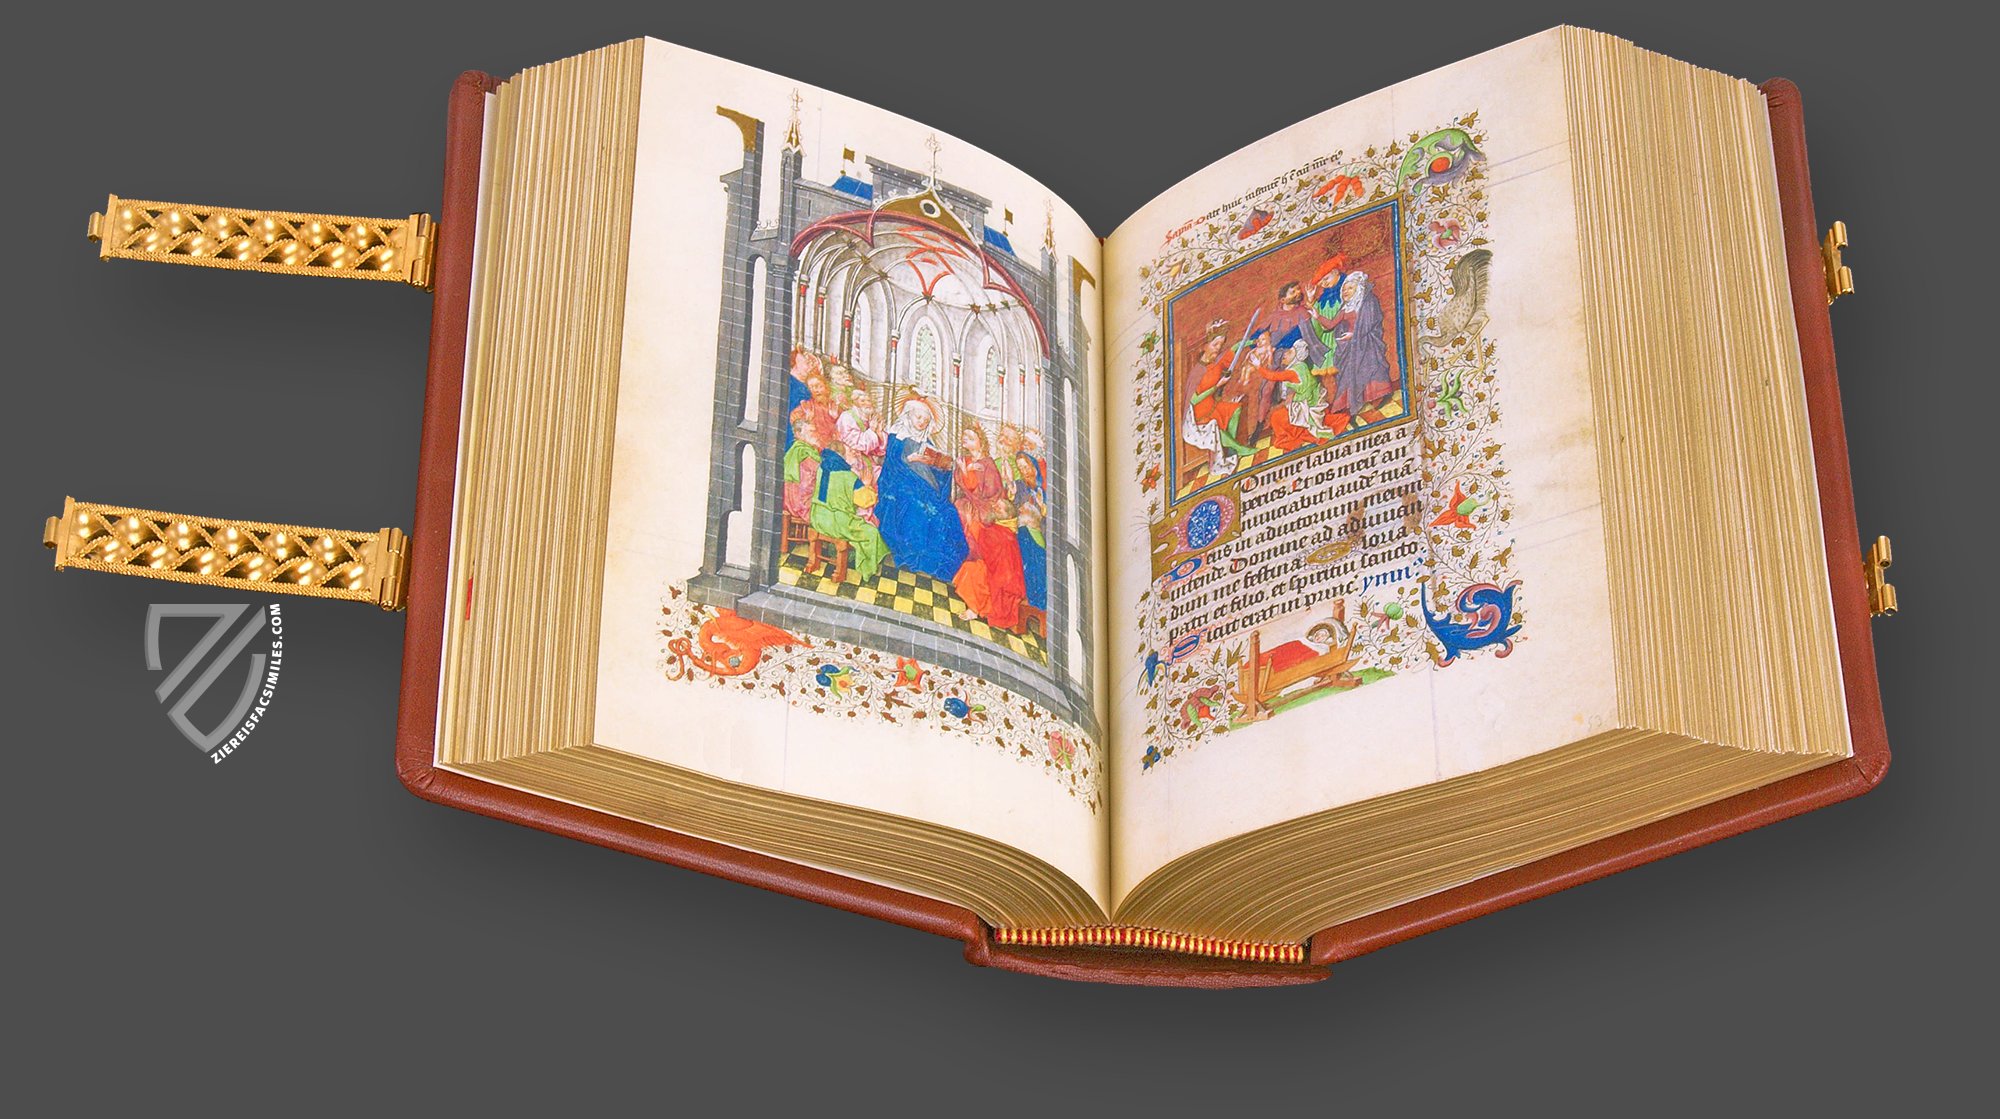 Domine labia mea a
peries. Et os meū an
nunciabit laudē tuā.
Deus in adiutorium meum
intende. Domine ad adiuuan
dum me festina. Gloria
patri et filio. et spiritui sancto.
Sicut erat in princ̄. ymn̄.
ZIEREISFACSIMILES.COM